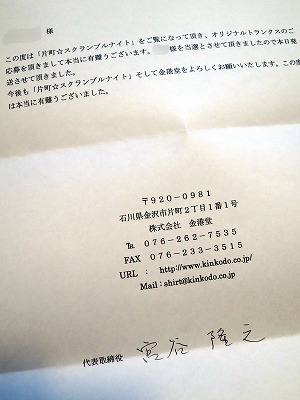 様
この度は「片町☆スクランブルナイト」をご覧になって頂き、オリジナルトランクスのご
応募を頂きまして本当に有難うございます。 様を当選とさせて頂きましたので本日発
送させて頂きました。
今後も「片町☆スクランブルナイト」そして金港堂をよろしくお願いいたします。この度
は本当に有難うございました。
〒920-0981
石川県金沢市片町2丁目1番1号
株式会社 金港堂
℡ 076-262-7535
FAX 076-233-3515
URL : http://www.kinkodo.co.jp/
Mail : shirt@kinkodo.co.jp
代表取締役 宮谷 隆之